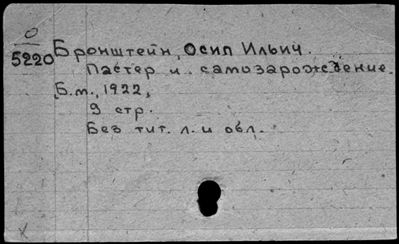 О
5220
Бронштейн, Осип Ильич.
Пастер и самозарождение.
Б.м., 1922,
9 стр.
Без тит. л. и обл.